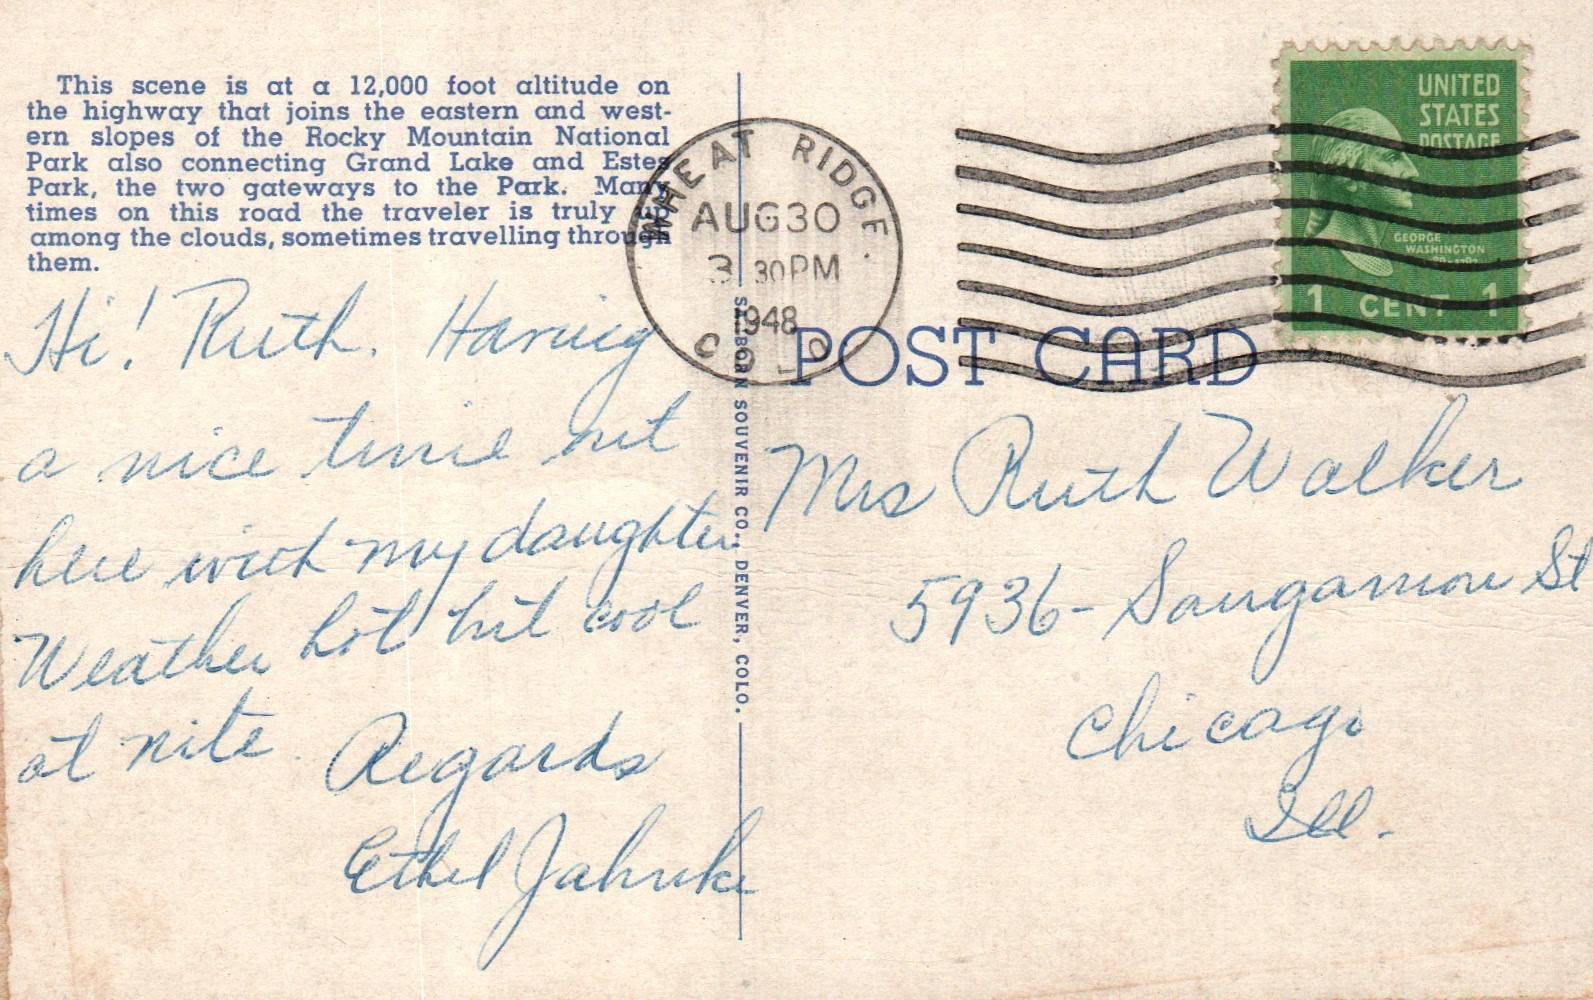 This scene is at a 12,000 foot altitude on
the highway that joins the eastern and west-
ern slopes of the Rocky Mountain National
Park also connecting Grand Lake and Estes
Park, the two gateways to the Park. Many
times on this road the traveler is truly up
among the clouds, sometimes travelling through
them.
Hi! Ruth. Having
a nice time out
here with my daughter.
Weather hot but cool
at nite.
Regards
Ethel Jahnke
SANBORN SOUVENIR CO., DENVER, COLO.
WHEAT RIDGE
AUG 30
3 30 PM
1948
COLO.
UNITED
STATES
POSTAGE
GEORGE
WASHINGTON
1 CENT 1
POST CARD
Mrs Ruth Walker
5936 - Sangamon St
Chicago
Ill.